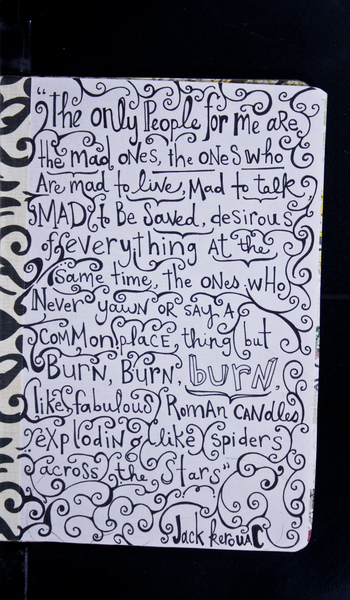 "the only People for me aRe
the mad oNes, the oNeS who
Are mad to live, Mad to talk
MAD to Be Saved, desirous
of everything AT the
same time, the oNes wHo
Never yawn OR say A
COMMonplaCE thing but
BuRN, BuRN, buRN,
like fabulous RoMAn CANdles
exploding like spiders
across the Stars"
Jack KerouaC